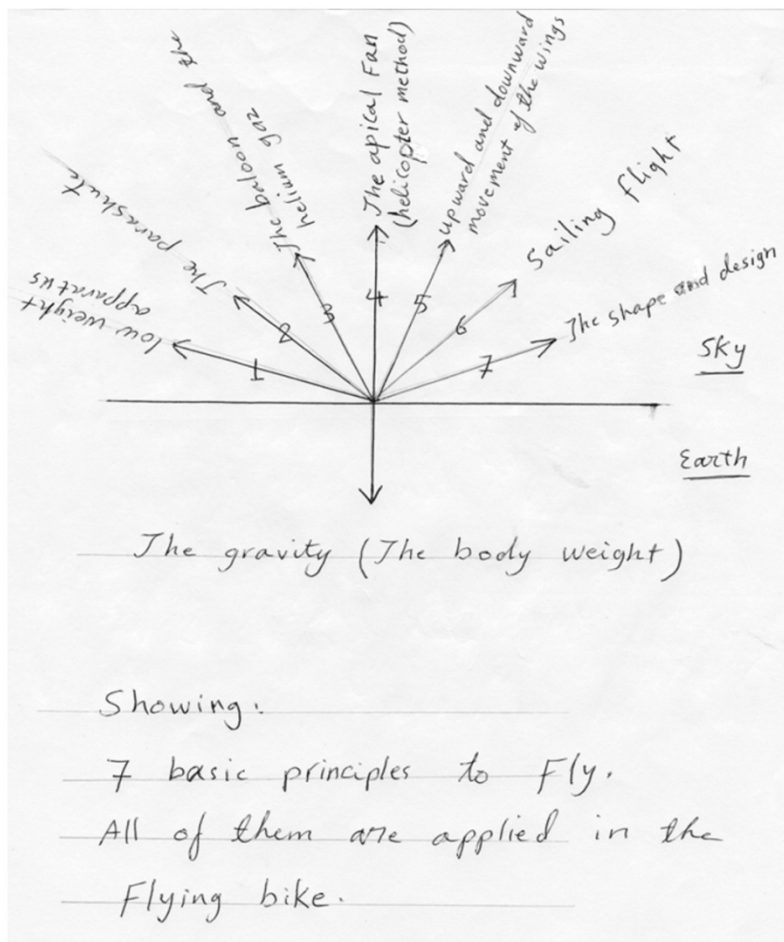 low weight
apparatus
1
The parashute
2
The baloon and the
helium gaz
3
The apical Fan
(helicopter method)
4
upward and downward
movement of the wings
5
Sailing flight
6
The shape and design
7
Sky
Earth
The gravity (The body weight)
Showing:
7 basic principles to Fly.
All of them are applied in the
Flying bike.